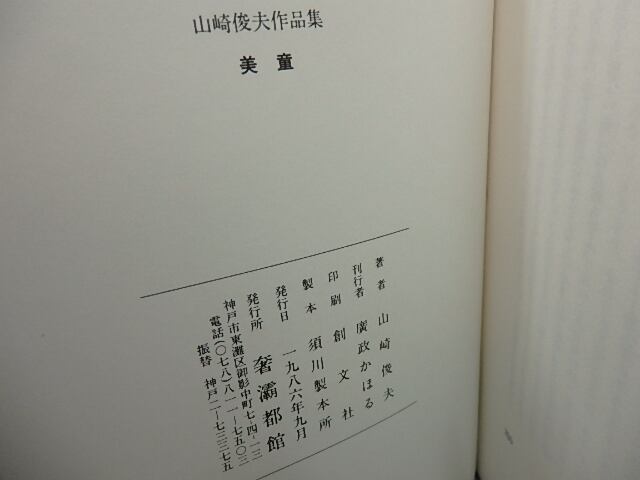 山崎俊夫作品集
美童
著者 山崎俊夫
刊行者 廣政かほる
印刷 創文社
製本 須川製本所
発行日 一九八六年九月
発行所 奢灞都館
神戸市東灘区御影中町七-四-一三
電話(〇七八)八一一-七五〇三
振替 神戸二-七三三七五